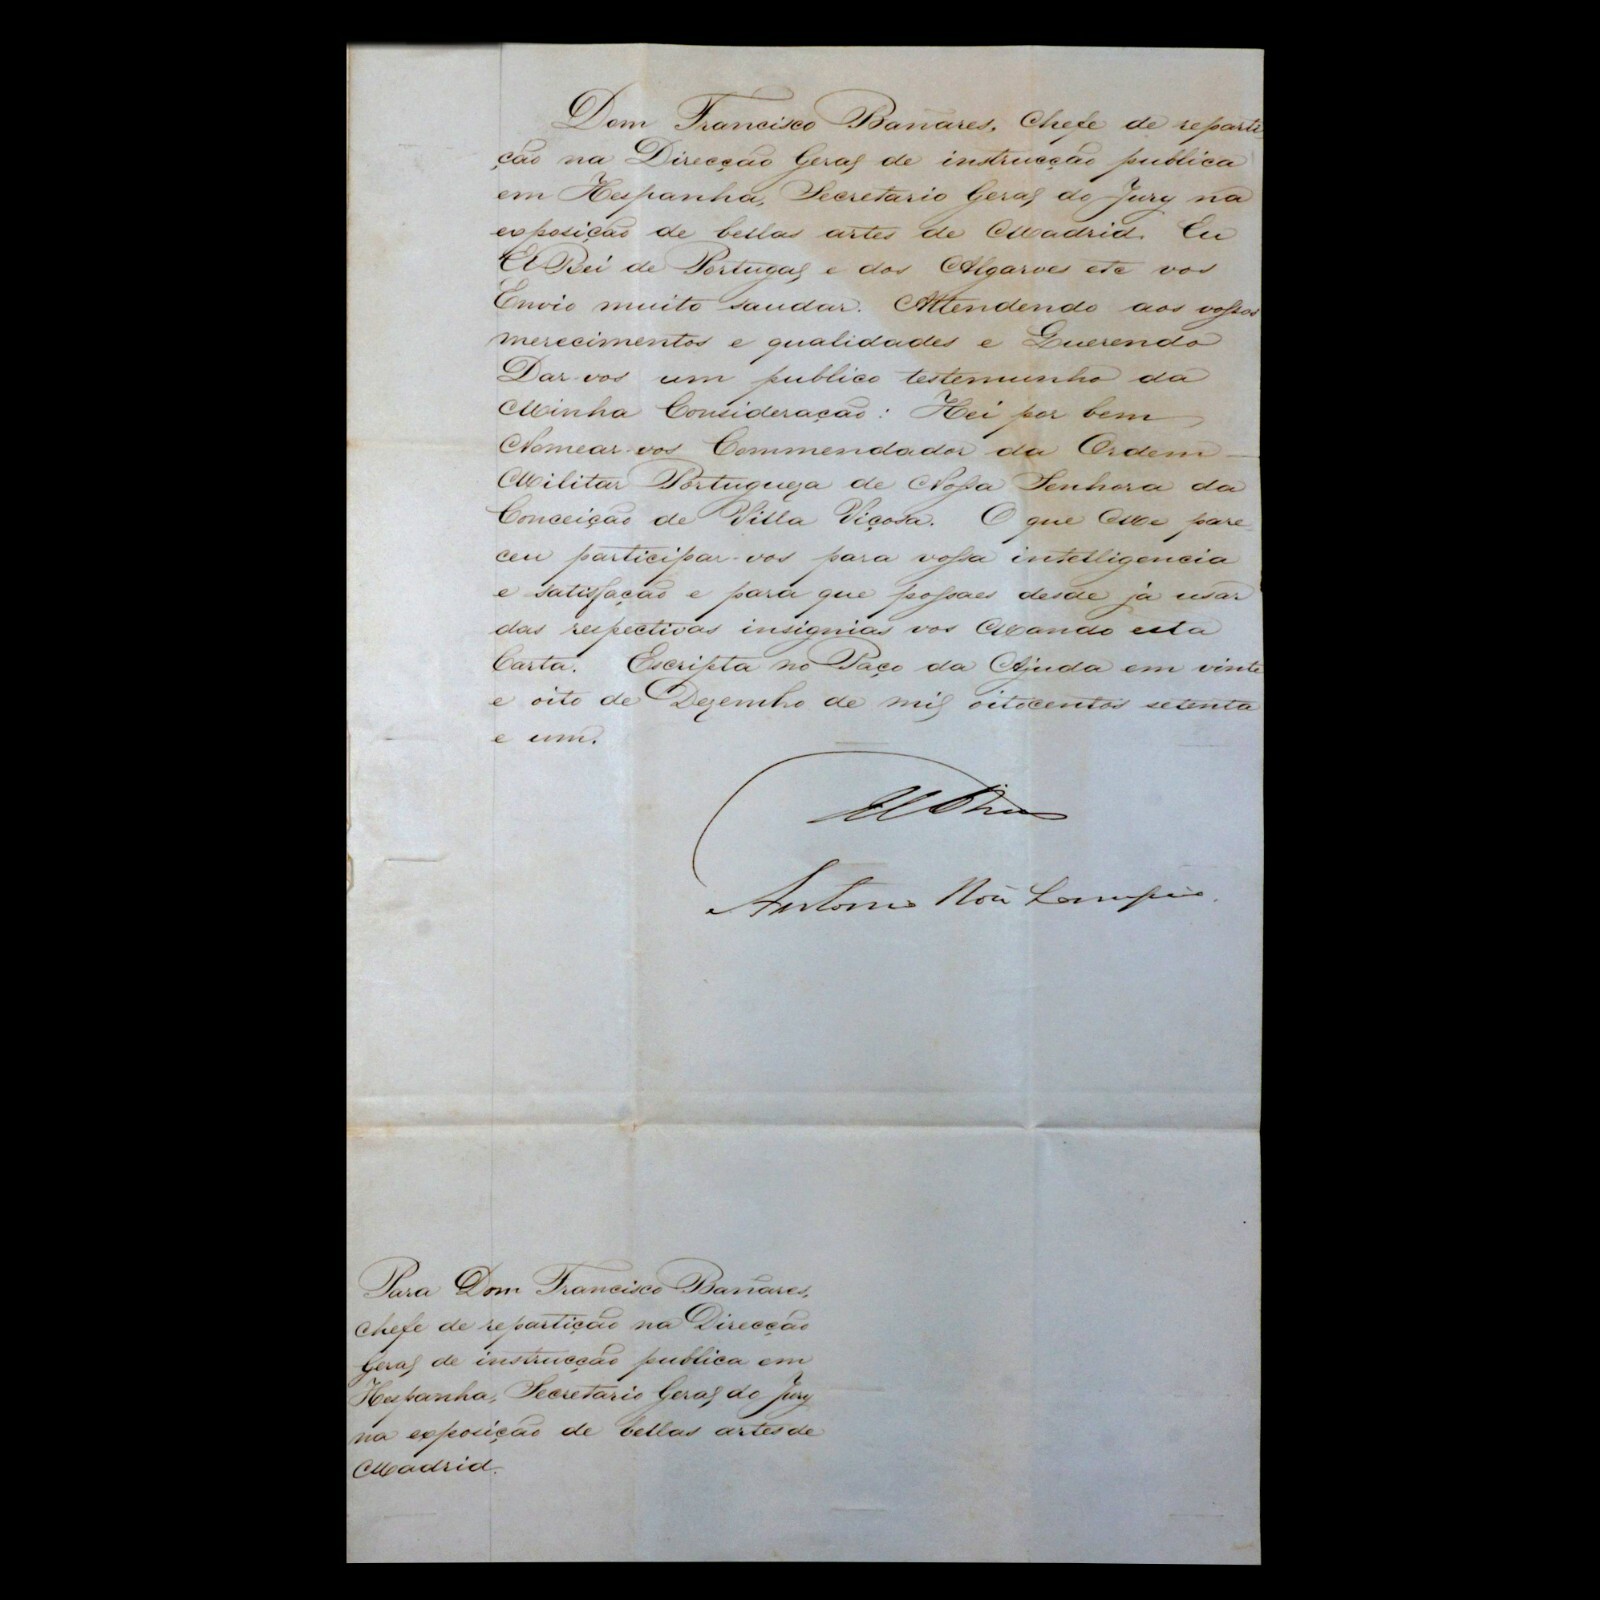 Dom Francisco Bañares, Chefe de reparti
ção na Direcção Geral de instrucção publica
em Hespanha, Secretario Geral do Jury na
exposição de bellas artes de Madrid. Eu
El Rei de Portugal e dos Algarves etc vos
Envio muito saudar. Attendendo aos vossos
merecimentos e qualidades e Querendo
Dar-vos um publico testemunho da
Minha Consideração: Hei por bem
Nomear-vos Commendador da Ordem
Militar Portugueza de Nossa Senhora da
Conceição de Villa Viçosa. O que Me pare
ceu participar-vos para vossa intelligencia
e satisfação e para que possaes desde já usar
das respectivas insignias vos Mando esta
Carta. Escripta no Paço da Ajuda em vinte
e oito de Dezembro de mil oitocentos setenta
e um.
El Rei
Antonio
Para Dom Francisco Bañares,
chefe de repartição na Direcção
Geral de instrucção publica em
Hespanha, Secretario Geral do Jury
na exposição de bellas artes de
Madrid.